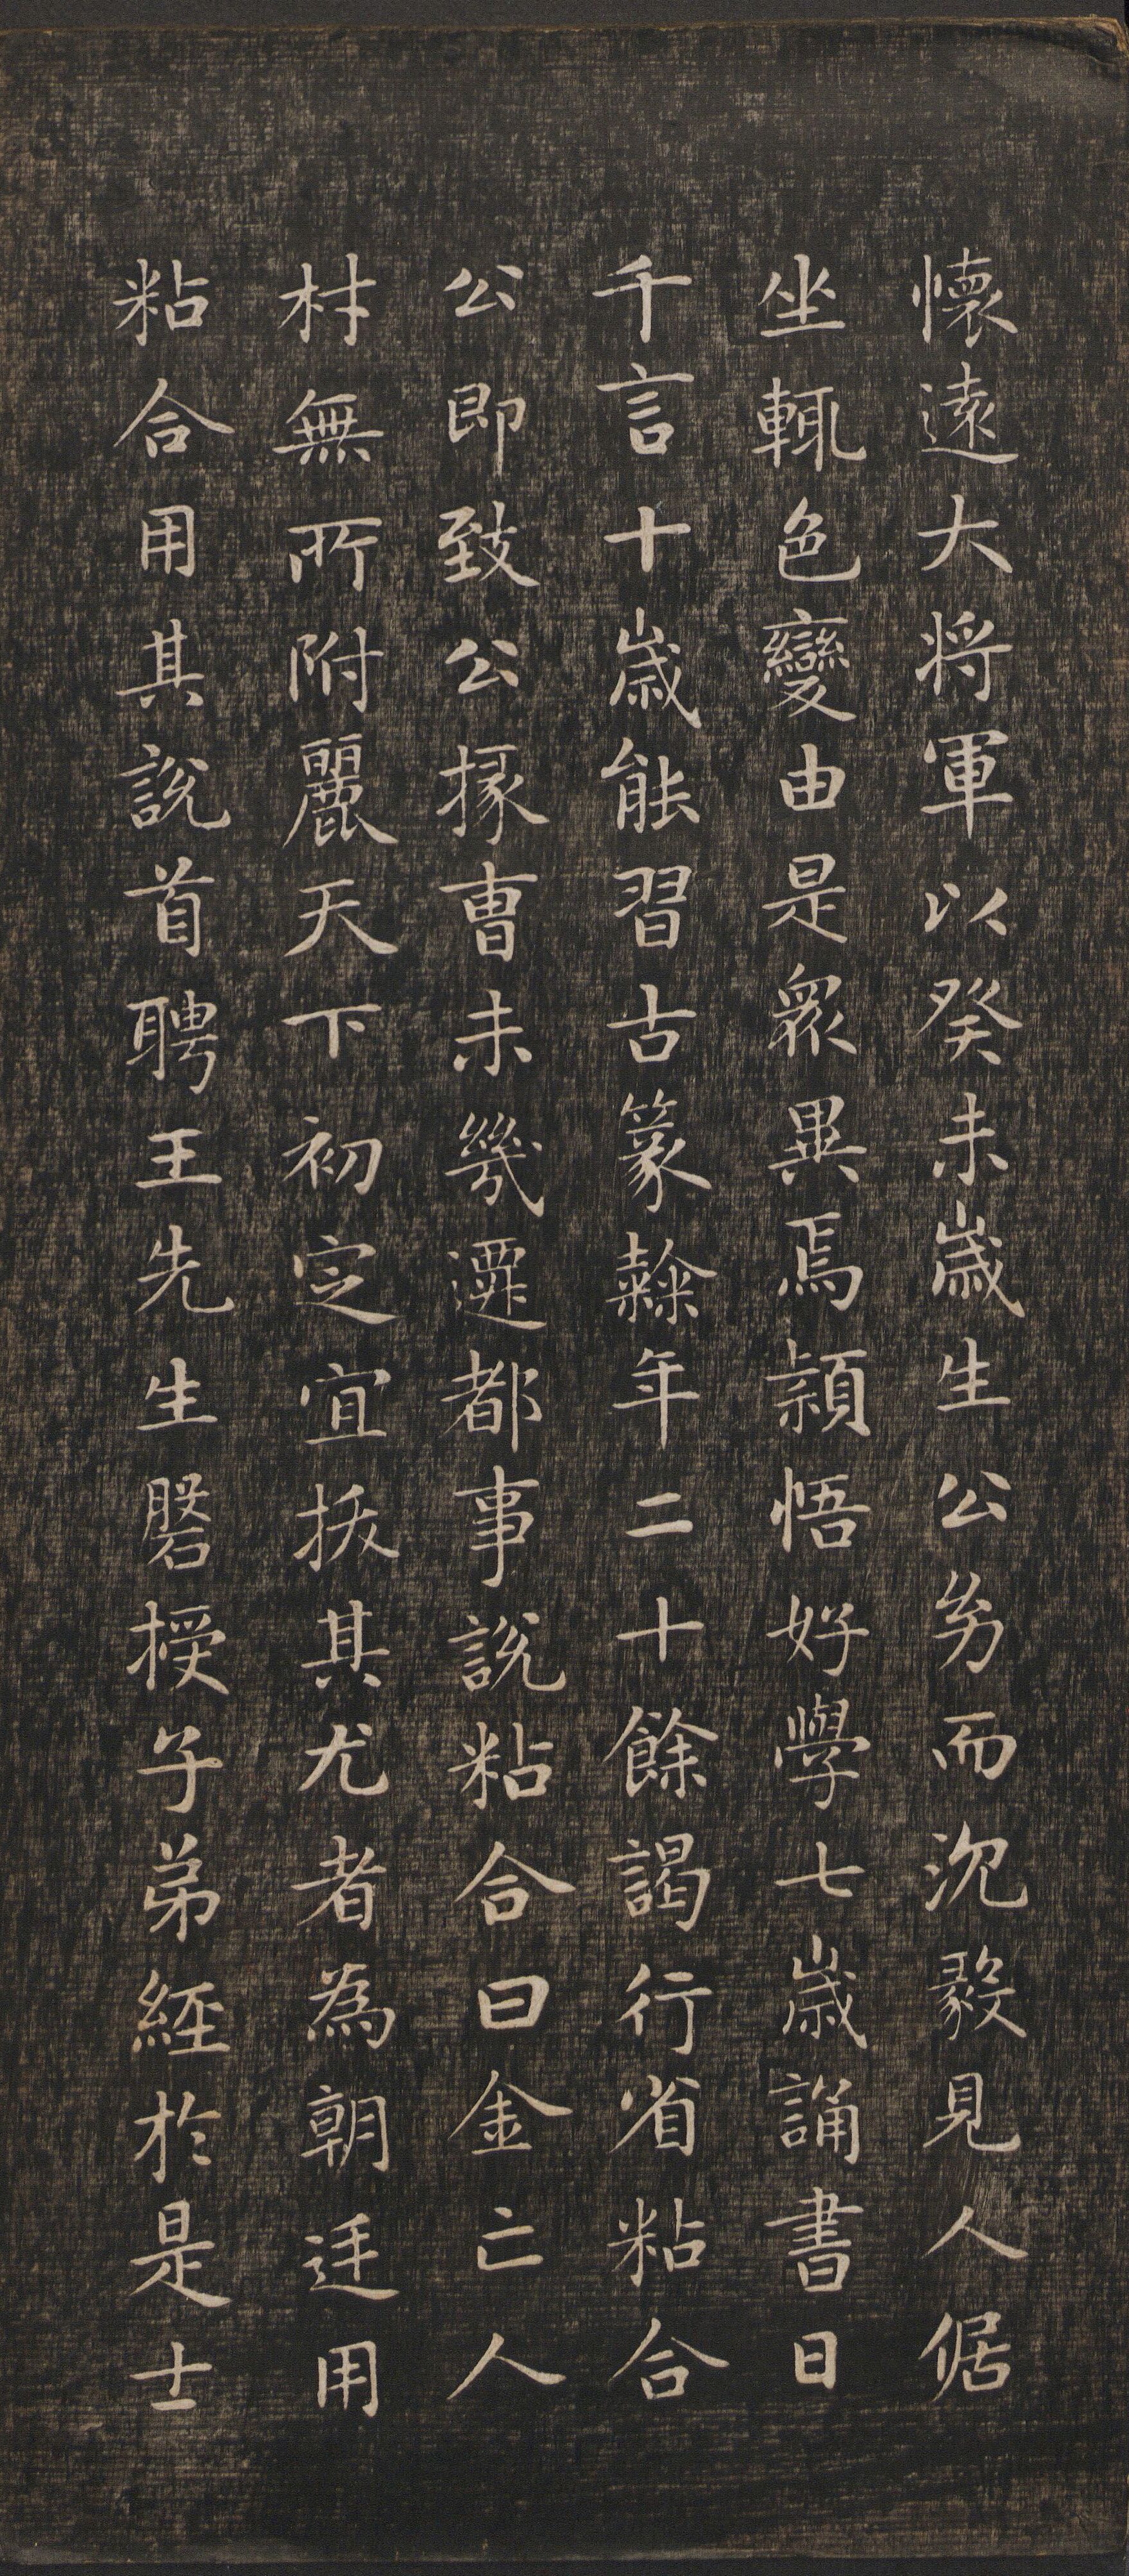 懷遠大將軍以癸未歲生公㓜而沉毅見人倨
坐輒色變由是衆異焉穎悟好學七歲誦書日
千言十歲能習古篆隸年二十餘謁行省粘合
公即致公掾曹未幾遷都事說粘合曰金亡人
材無所附麗天下初定宜拔其尤者為朝廷用
粘合用其說首聘王先生磐授子弟經於是士